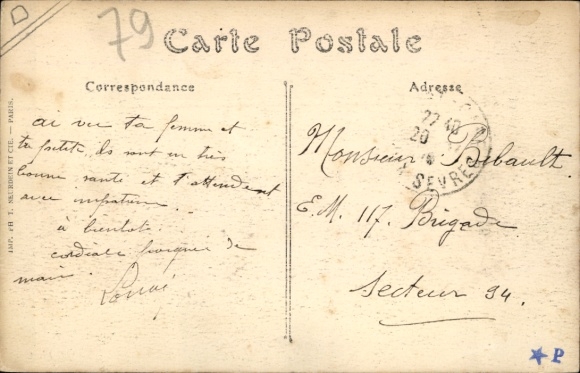 79
Carte Postale
Correspondance
Adresse
ai vu ta femme et
ta petite ils sont en très
bonne santé et t'attendent
avec impatience
à bientôt
cordiale poignée de
main.
Monsieur Bibault.
E.M. 117. Brigade
Secteur 94.
SEVRE
IMP. PH T. NEURDEIN ET CIE. — PARIS.
P